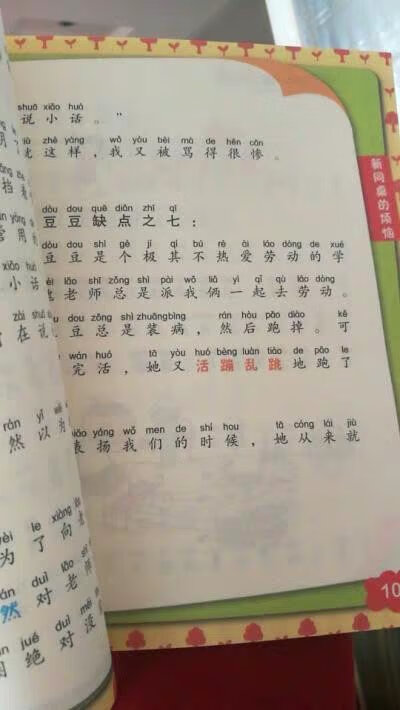 shuō xiǎo huà
说小话。”
zhè yàng wǒ yòu bèi mà de hěn cǎn
这样，我又被骂得很惨。
dòu dou quē diǎn zhī qī
豆豆缺点之七：
dòu dou shì gè jí qí bú rè ài láo dòng de xué
豆豆是个极其不热爱劳动的学
lǎo shī zǒng shì pài wǒ liǎ yì qǐ qù láo dòng
老师总是派我俩一起去劳动。
dou zǒng shì zhuāngbìng rán hòu pǎo diào kě
豆总是装病，然后跑掉。可
wán huó tā yòu huó bèng luàn tiào de pǎo le
完活，她又活蹦乱跳地跑了
yáng wǒ men de shí hou tā cóng lái jiù
表扬我们的时候，她从来就
新同桌的烦恼
10
管用的
小话
在说
rán yǐ wéi
然以为
wèi le xiàng
为了向
duì lǎo shī
然对老师
jué duì méi
绝对没